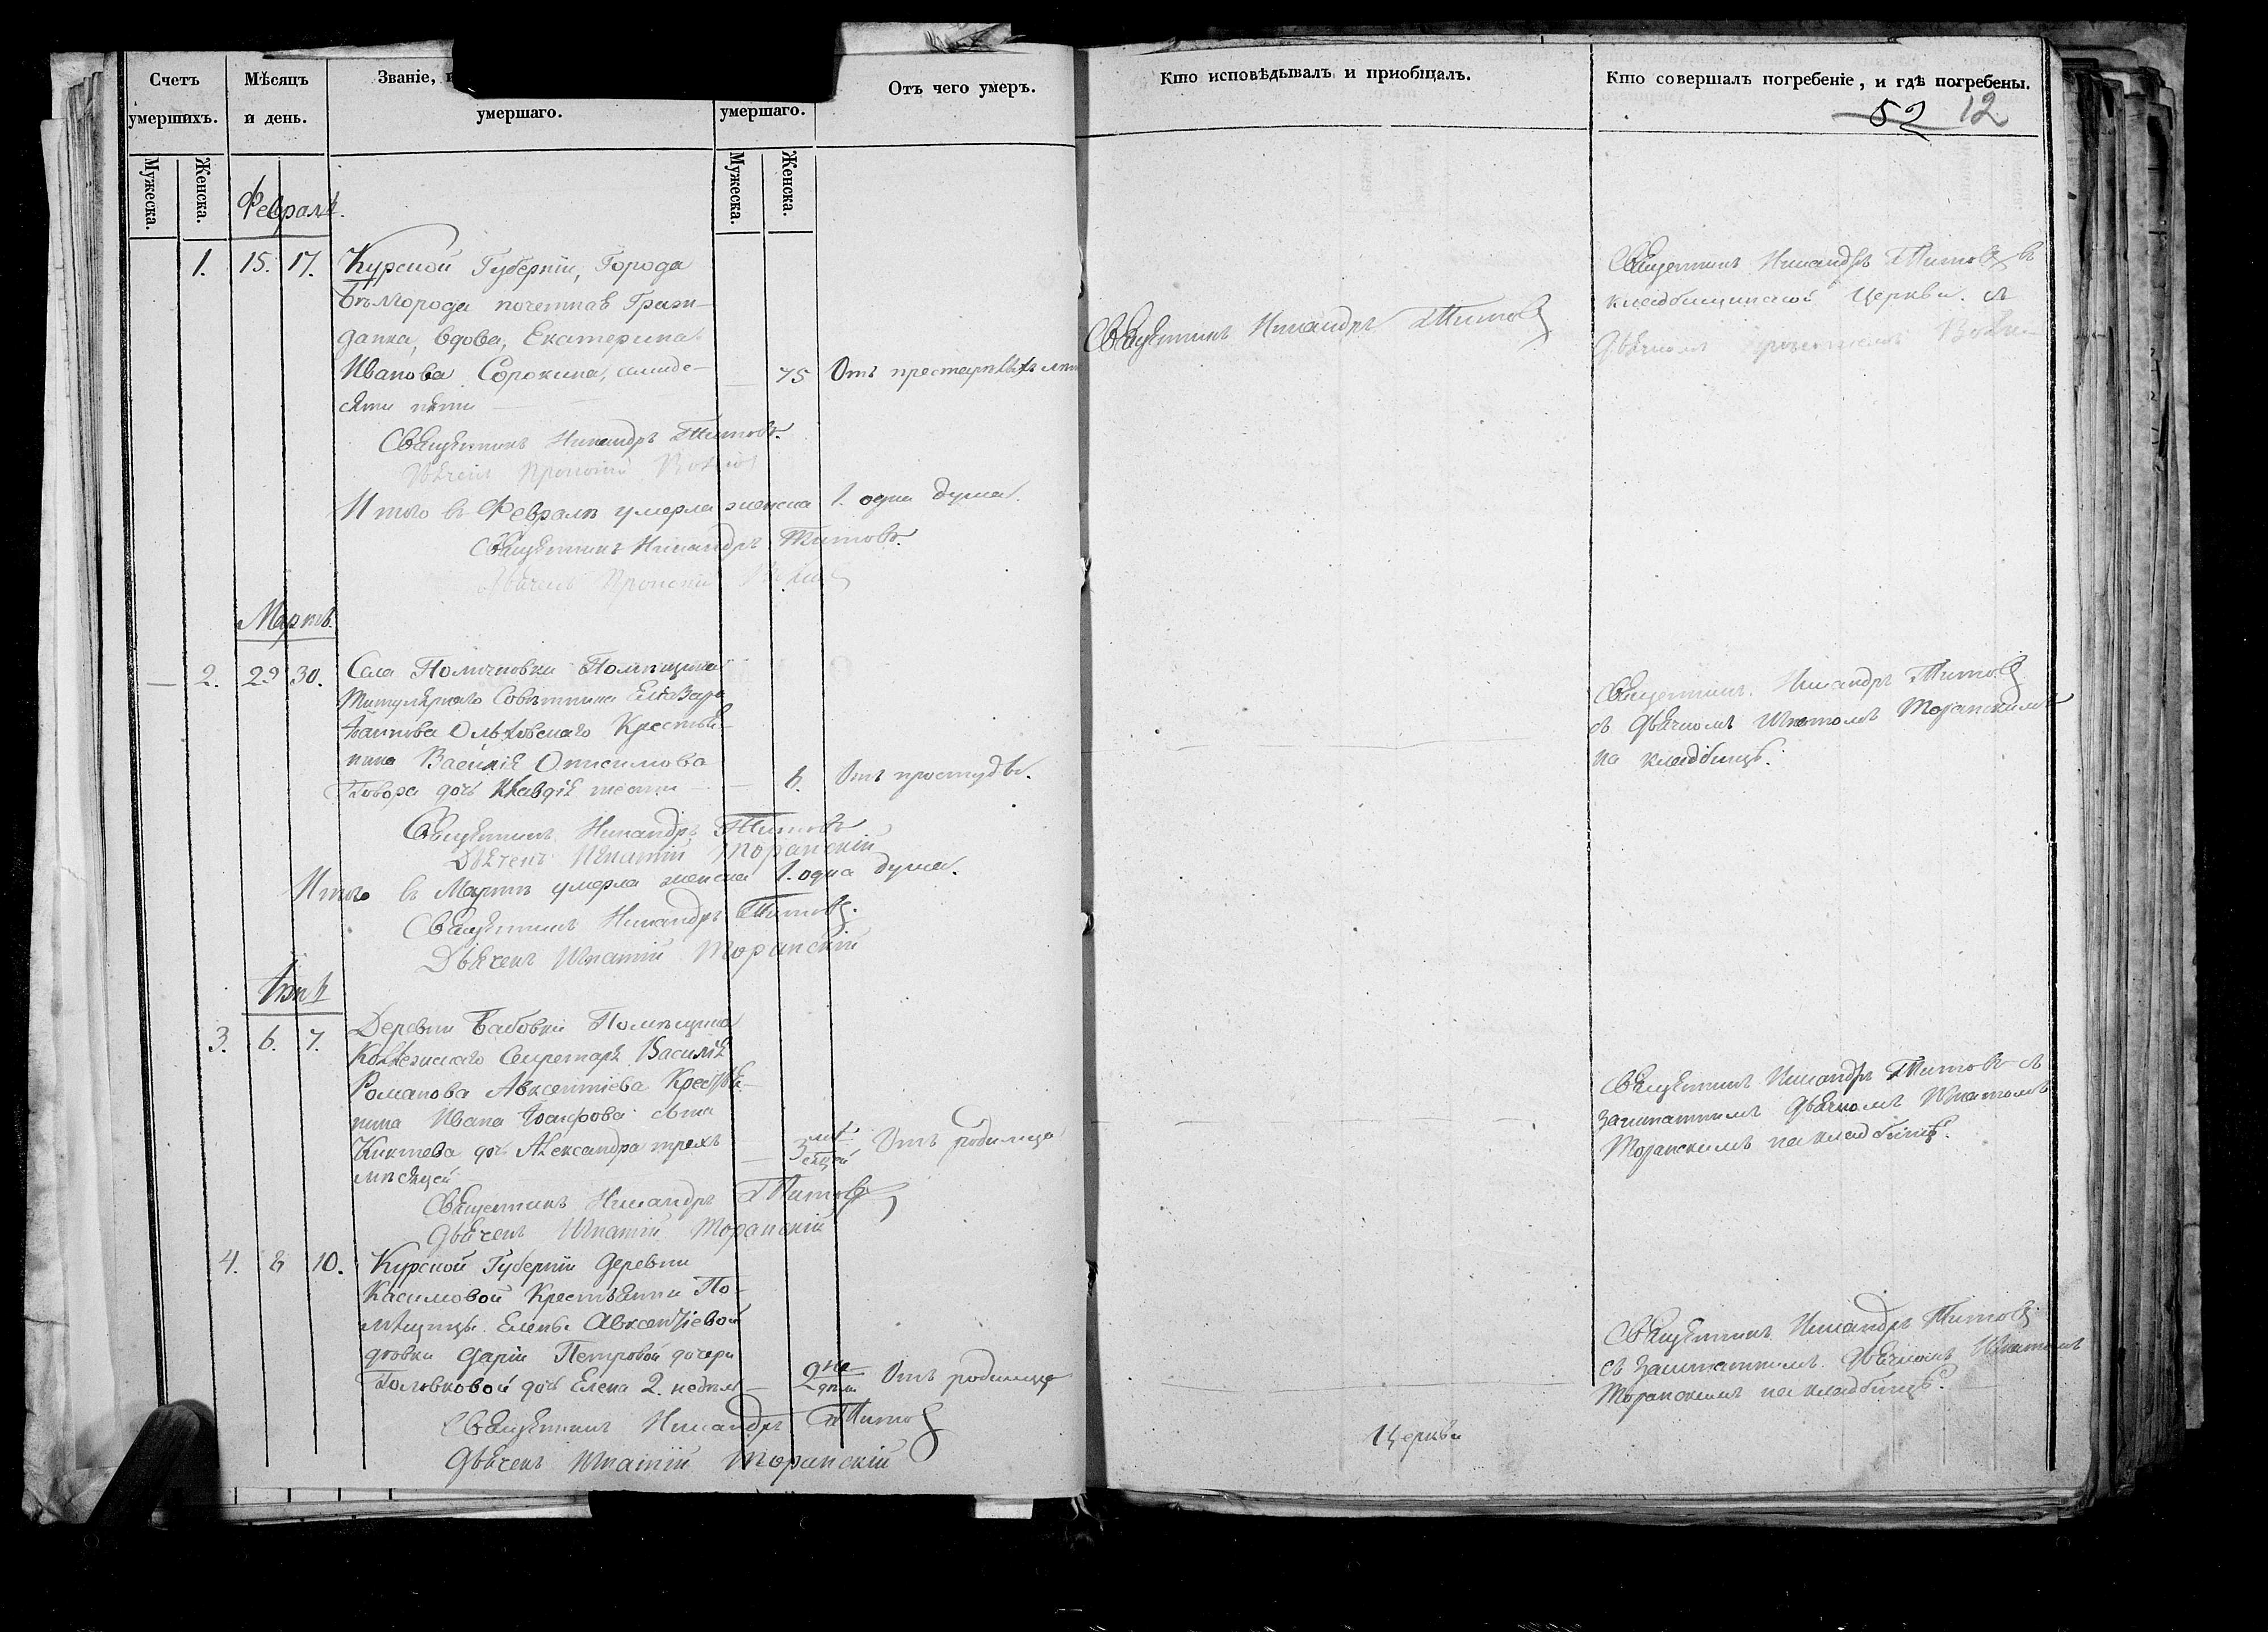 Счетъ
умершихъ.
Мѣсяцъ
и день.
Званіе,
умершаго.
умершаго.
Отъ чего умеръ.
Кто исповѣдывалъ и пріобщалъ.
Кто совершалъ погребеніе, и гдѣ погребены.
52 12
Мужеска.
Женска.
Мужеска.
Женска.
Февраль.
1. 15. 17. Курской Губерніи, Города
Бѣлгорода почетная Граж-
данка, вдова, Екатерина
Иванова Сорокина, семиде-
сяти пяти
75 Отъ престарѣлыхъ лѣтъ
Священникъ Никандръ Титовъ
Священникъ Никандръ Титовъ въ
кладбищинской Церкви. съ
Дьячкомъ
Священникъ Никандръ Титовъ.
Дьячекъ
Итого въ Февралѣ умерла женска 1. одна душа.
Священникъ Никандръ Титовъ.
Дьячекъ
Мартъ.
2. 29 30. Села Помѣщика
Титулярнаго Совѣтника
Ольховскаго Крестья-
нина Василія Онисимова
Говора дочь Клавдія шести
6. Отъ простуды.
Священникъ Никандръ Титовъ
съ Дьячкомъ Игнатомъ
на кладбищѣ.
Священникъ Никандръ Титовъ
Дьячекъ Игнатій
Итого въ Мартѣ умерла женска 1. одна душа.
Священникъ Никандръ Титовъ.
Дьячекъ Игнатій
3. 6. 7. Деревни Бабовки Помѣщика
Коллежскаго Секретаря Василія
Романова Авксентіева Крестья-
нина Ивана сына
дочь Александра трехъ
мѣсяцей
3 мѣсяцей Отъ родимца
Священникъ Никандръ Титовъ съ
заштатнымъ Дьячкомъ Игнатомъ
на кладбищѣ.
Священникъ Никандръ Титовъ
Дьячекъ Игнатій
4. 8 10. Курской Губерніи Деревни
Касиловой Крестьянки По-
мѣщицы Елены Авксентіевой
дѣвки Даріи Петровой дочери
Головковой дочь Елена 2. недѣль
2 недѣли Отъ родимца
Священникъ Никандръ Титовъ
съ заштатнымъ Дьячкомъ Игнатомъ
на кладбищѣ.
Священникъ Никандръ Титовъ
Дьячекъ Игнатій
Церкви